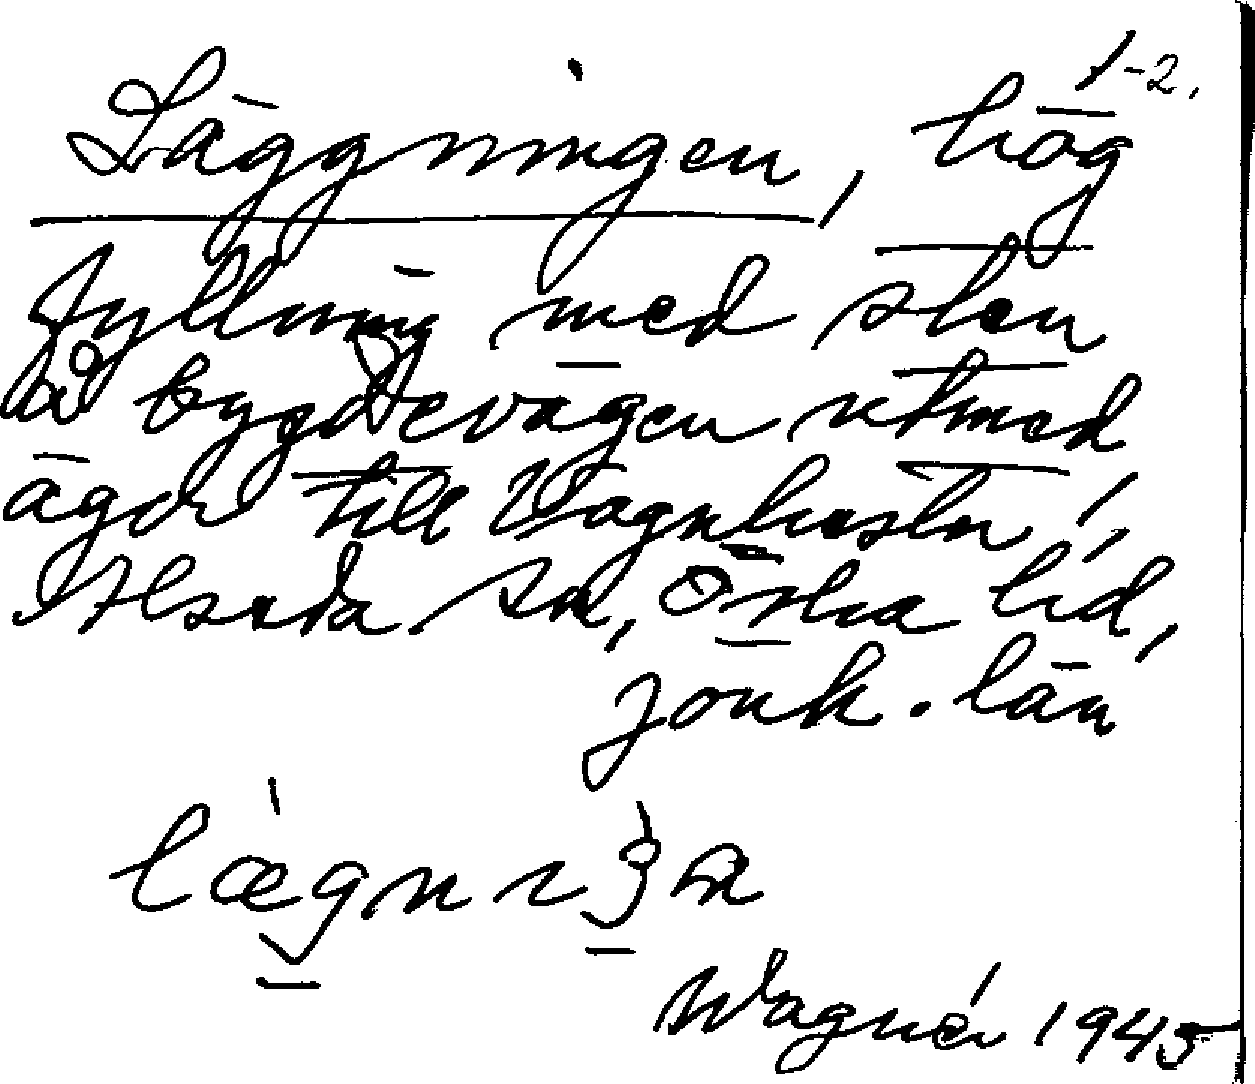 1-2.
Läggningen, hög
fyllning med sten
å bygdevägen utmed
ägor till Vagnhester,
Alseda sn, Östra hd,
Jönk. län
Wagnér 1945